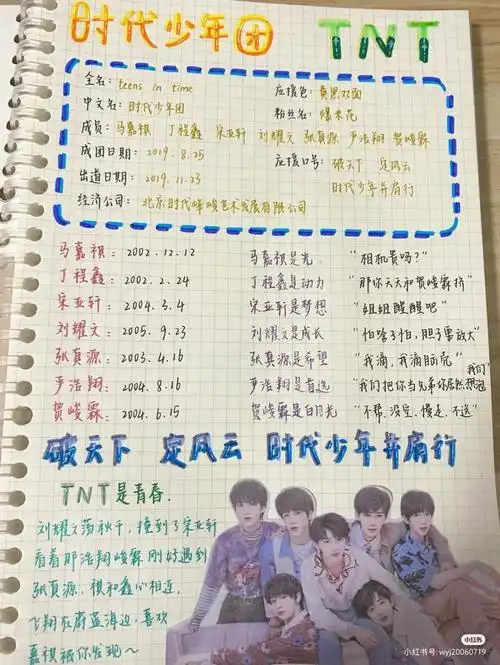 时代少年团 TNT
全名：teens in time 应援色：黄黑双面
中文名：时代少年团 粉丝名：爆米花
成员：马嘉祺 丁程鑫 宋亚轩 刘耀文 张真源 严浩翔 贺峻霖
成团日期：2019.8.25 应援口号：破天下 定风云
出道日期：2019.11.23 时代少年并肩行
经济公司：北京时代峰峻艺术发展有限公司
马嘉祺：2002.12.12 马嘉祺是光 "相机贵吗？"
丁程鑫：2002.2.24 丁程鑫是动力 "那你天天和贺峻霖挤"
宋亚轩：2004.3.4 宋亚轩是梦想 "姐姐醒醒吧"
刘耀文：2005.9.23 刘耀文是成长 "怕啥子怕，胆子要放大"
张真源：2003.4.16 张真源是希望 "我滴，我滴
严浩翔：2004.8.16 严浩翔是首选 "我们把你当兄弟你居然想
我们"
贺峻霖：2004.6.15 贺峻霖是白月光 "不帮，没空，慢走，不送"
破天下 定风云 时代少年并肩行
TNT是青春.
刘耀文荡秋千，撞到了宋亚轩
看着那浩翔峻霖刚好遇到
张真源，祺和鑫心相连，
飞翔在蔚蓝海边，喜欢
嘉祺被你发现～
小红书
小红书号：wyj20060719